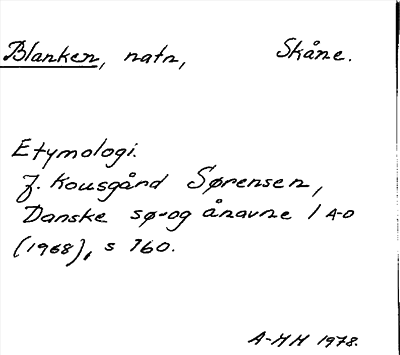 Blanken, natn, Skåne.
Etymologi.
J. Kousgård Sørensen,
Danske sø- og ånavne 1 A-D
(1968), s 160.
A-HH 1978.